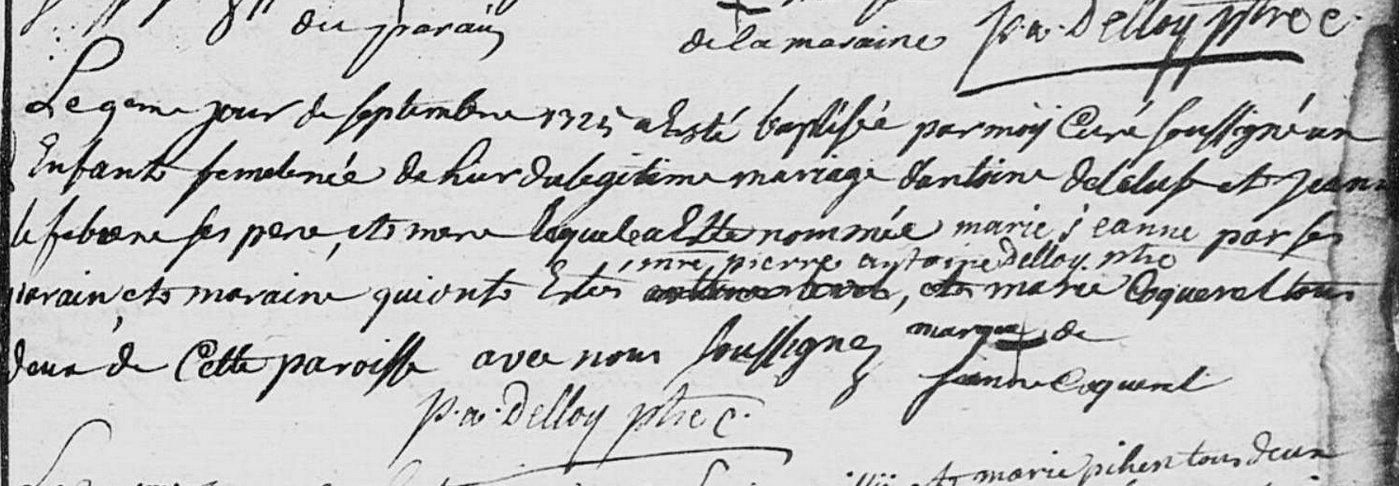 du parain
de la maraine p.a. Delloy ptre c.
Le 9eme jour de septembre 1725 a Esté baptisée par moÿ Curé soussigné un
Enfant femel née de hier du legitime mariage d'antoine delduf et jeanne
le febvre ses pere et mere laquelle a Esté nommée marie jeanne par ses
mre pierre antoine Delloy ptre
parain et maraine qui onts Estés , et marie Coquerel tous
deux de Cette paroisse avec nous soussignez marque de
jeanne Coquerel
p.a. Delloy ptre c.
et marie pihen tous deux